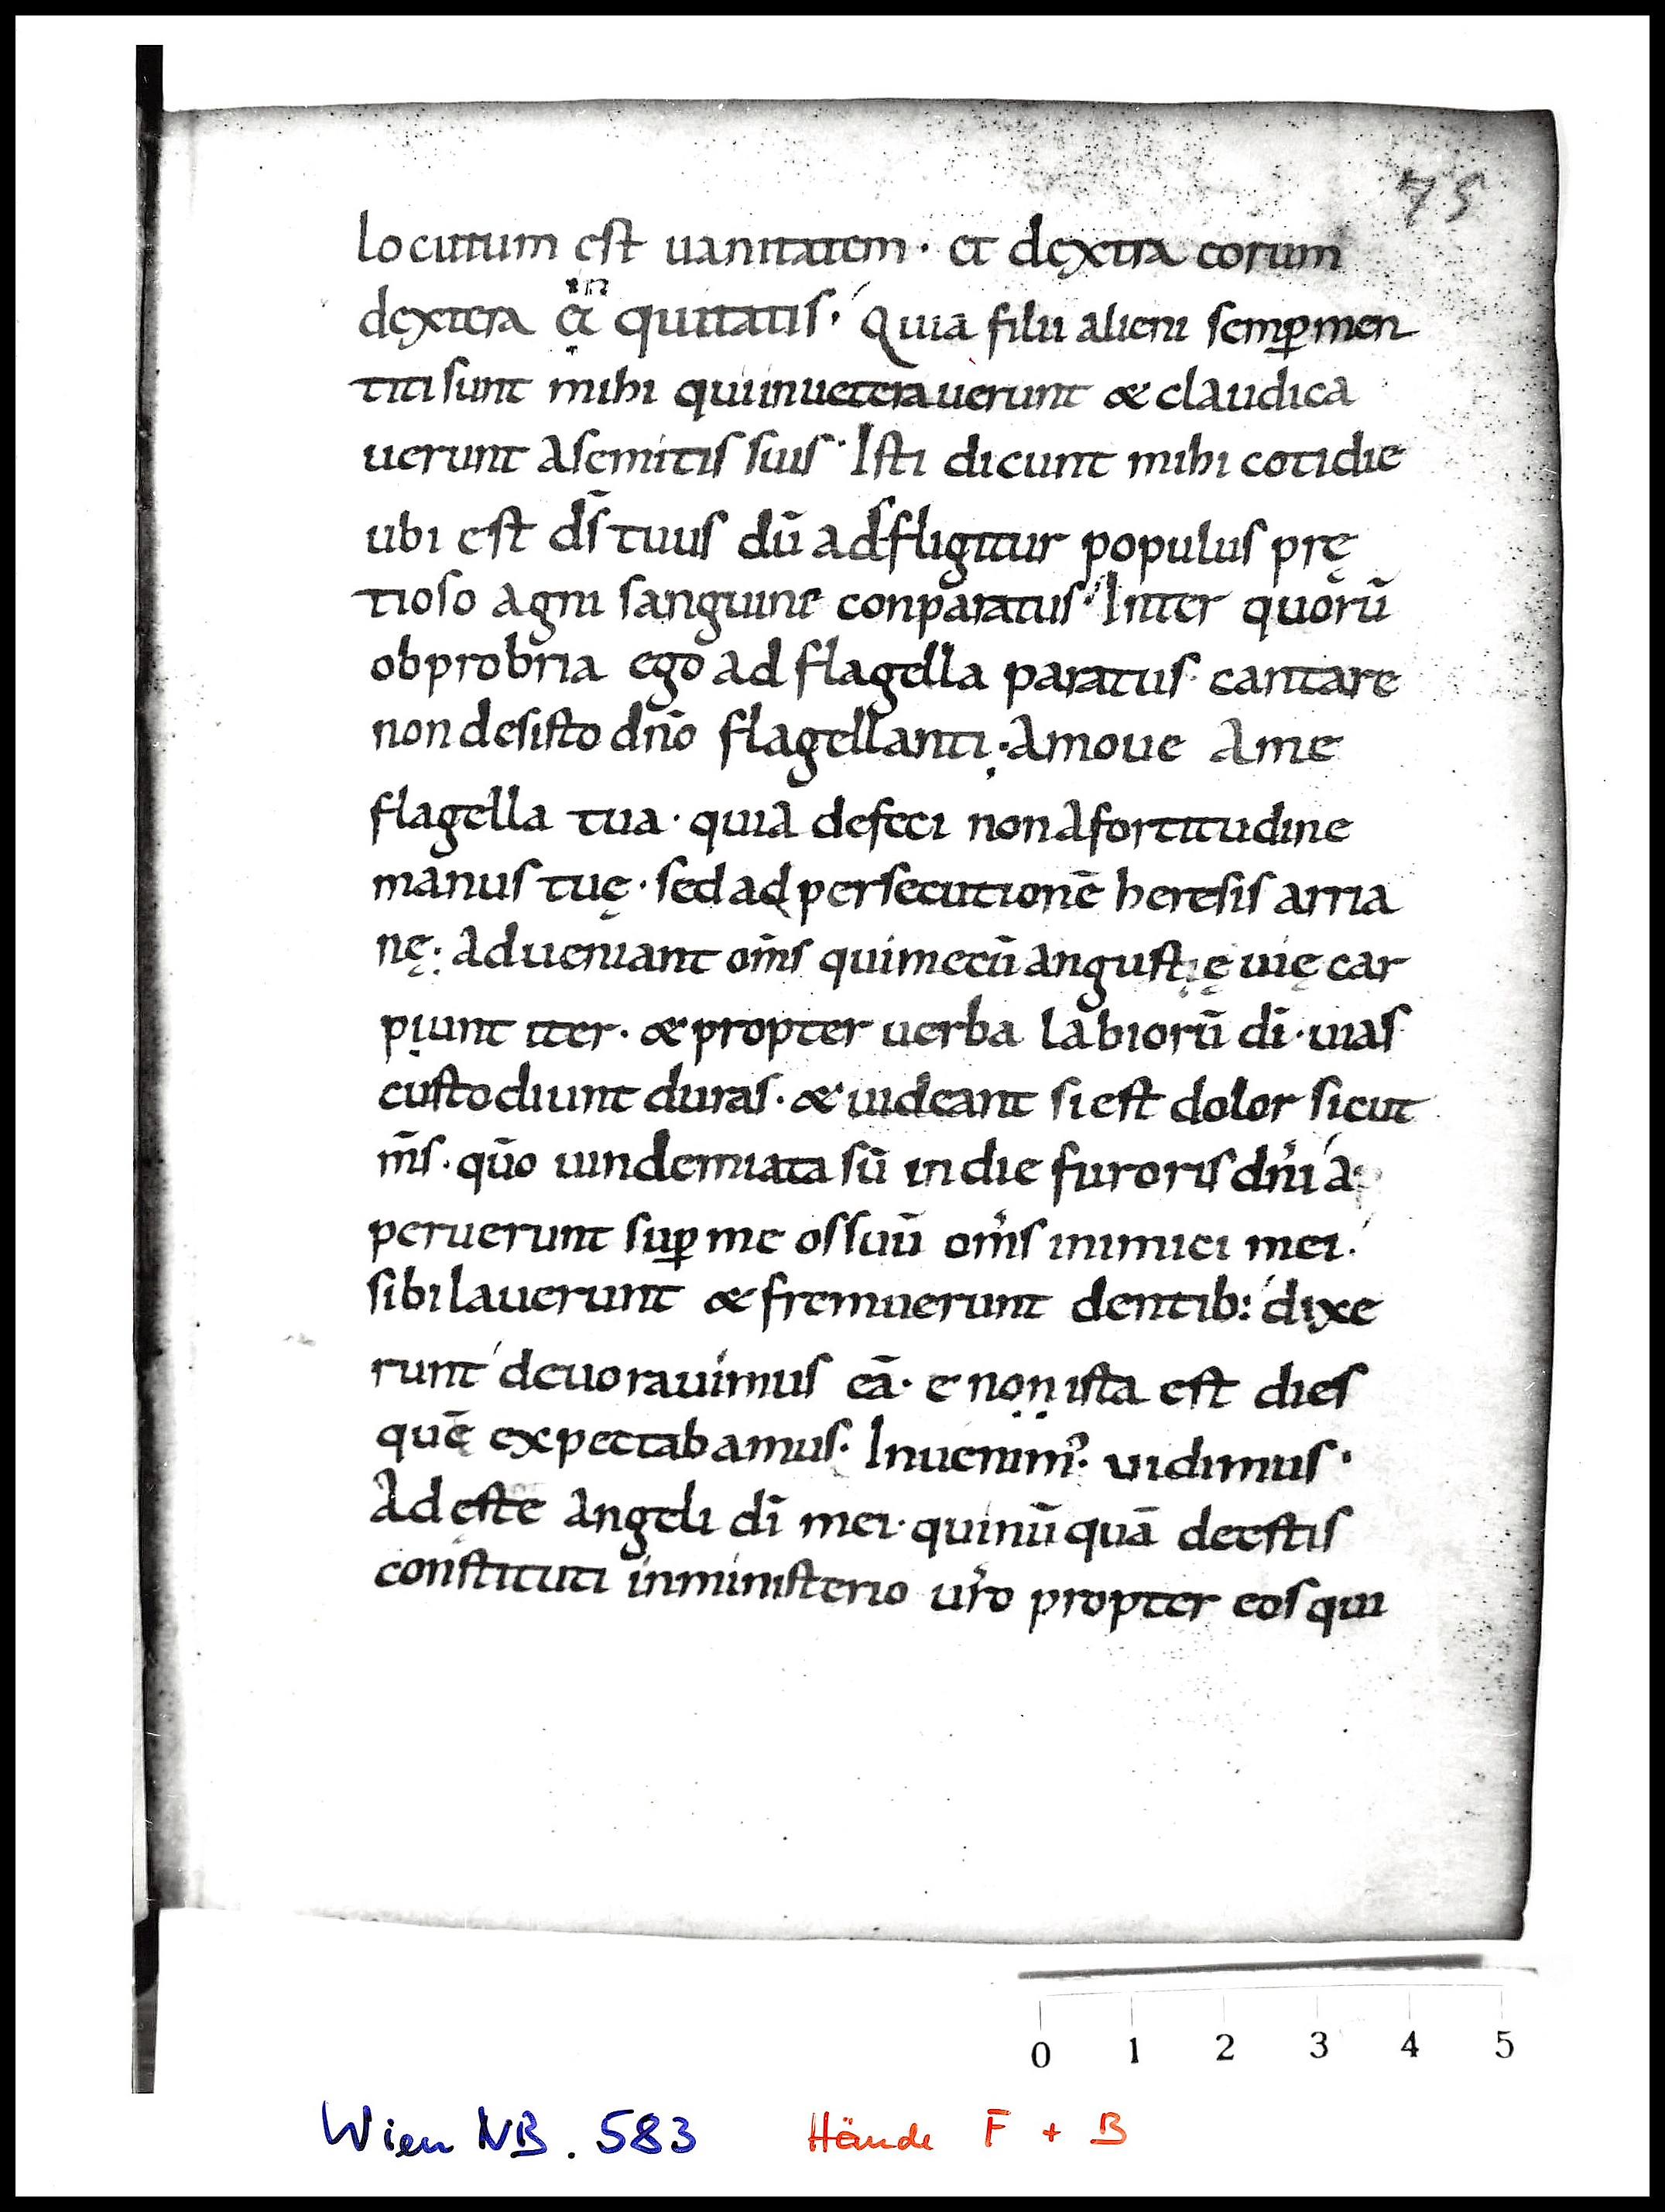 75
locutum est uanitatem · et dęxtra eorum
dęxtera et quitatis · Quia filii alieni semꝑ men
titi sunt mihi qui inueterauerunt & claudica
uerunt a semitis suis · Isti dicunt mihi cotidie
ubi est d̄s tuus dū adfligitur populus prę
tioso agni sanguine conparatus · Inter quorū
obprobria ego ad flagella paratus · cantare
non desisto dn̄o flagellanti · Amoue a me
flagella tua · quia defeci non a fortitudine
manus tuę · sed ad persecutionē heresis arria
nę · adueniant om̄s qui mecū angustię uię car
piunt iter · & propter uerba labiorū dī · uias
custodiunt duras · & uideant si est dolor sicut
m̄s · qūo uindemiata sū in die furoris dn̄i a
peruerunt suꝑ me os suū om̄s inimici mei ·
sibilauerunt & fremuerunt dentib: dixe
runt deuorauimus eā · e non ista est dies
quē expectabamus · Inuenim᾿ · uidimus ·
Adęste angeli dī mei · qui nūquā deestis
constituti in ministerio ur̄o propter eos qui
0 1 2 3 4 5
Wien NB. 583 Hände F + B